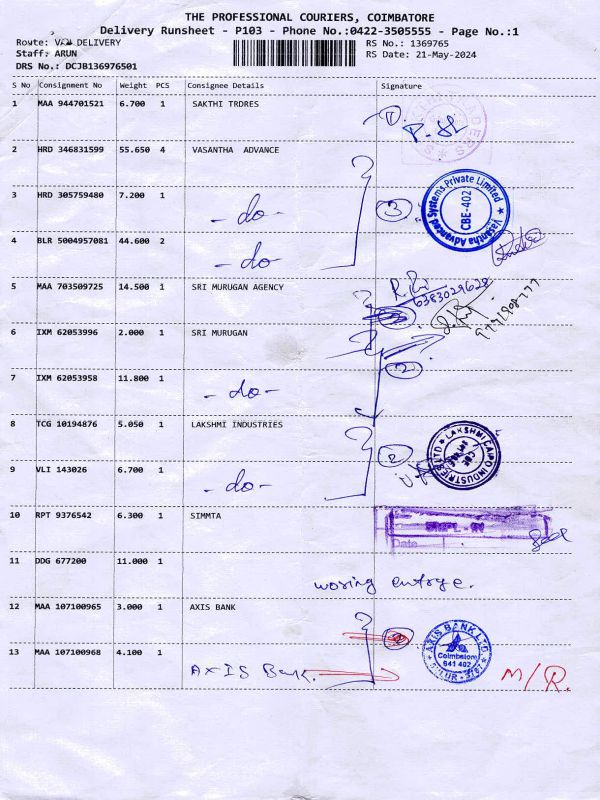 THE PROFESSIONAL COURIERS, COIMBATORE
Delivery Runsheet - P103 - Phone No.:0422-3505555 - Page No.:1
Route: VAN DELIVERY
RS No.: 1369765
Staff: ARUN
RS Date: 21-May-2024
DRS No.: DCJB136976501
S No Consignment No Weight PCS Consignee Details Signature
1 MAA 944701521 6.700 1 SAKTHI TRDRES
①
2 HRD 346831599 55.650 4 VASANTHA ADVANCE
3 HRD 305759480 7.200 1 -do-
③
Vasantha Advanced Systems Private Limited
CBE-402
4 BLR 5004957081 44.600 2 -do-
5 MAA 703509725 14.500 1 SRI MURUGAN AGENCY
6383029628
6 IXM 62053996 2.000 1 SRI MURUGAN
7 IXM 62053958 11.800 1 -do-
②
8 TCG 10194876 5.050 1 LAKSHMI INDUSTRIES
LAKSHMI CAIPO INDUSTRIES LTD
9 VLI 143026 6.700 1 -do-
10 RPT 9376542 6.300 1 SIMMTA
Date
11 DDG 677200 11.000 1
woring entrye.
12 MAA 107100965 3.000 1 AXIS BANK
②
AXIS BANK LTD
Coimbatore
641 402
13 MAA 107100968 4.100 1 AXIS Bank.
M/R.